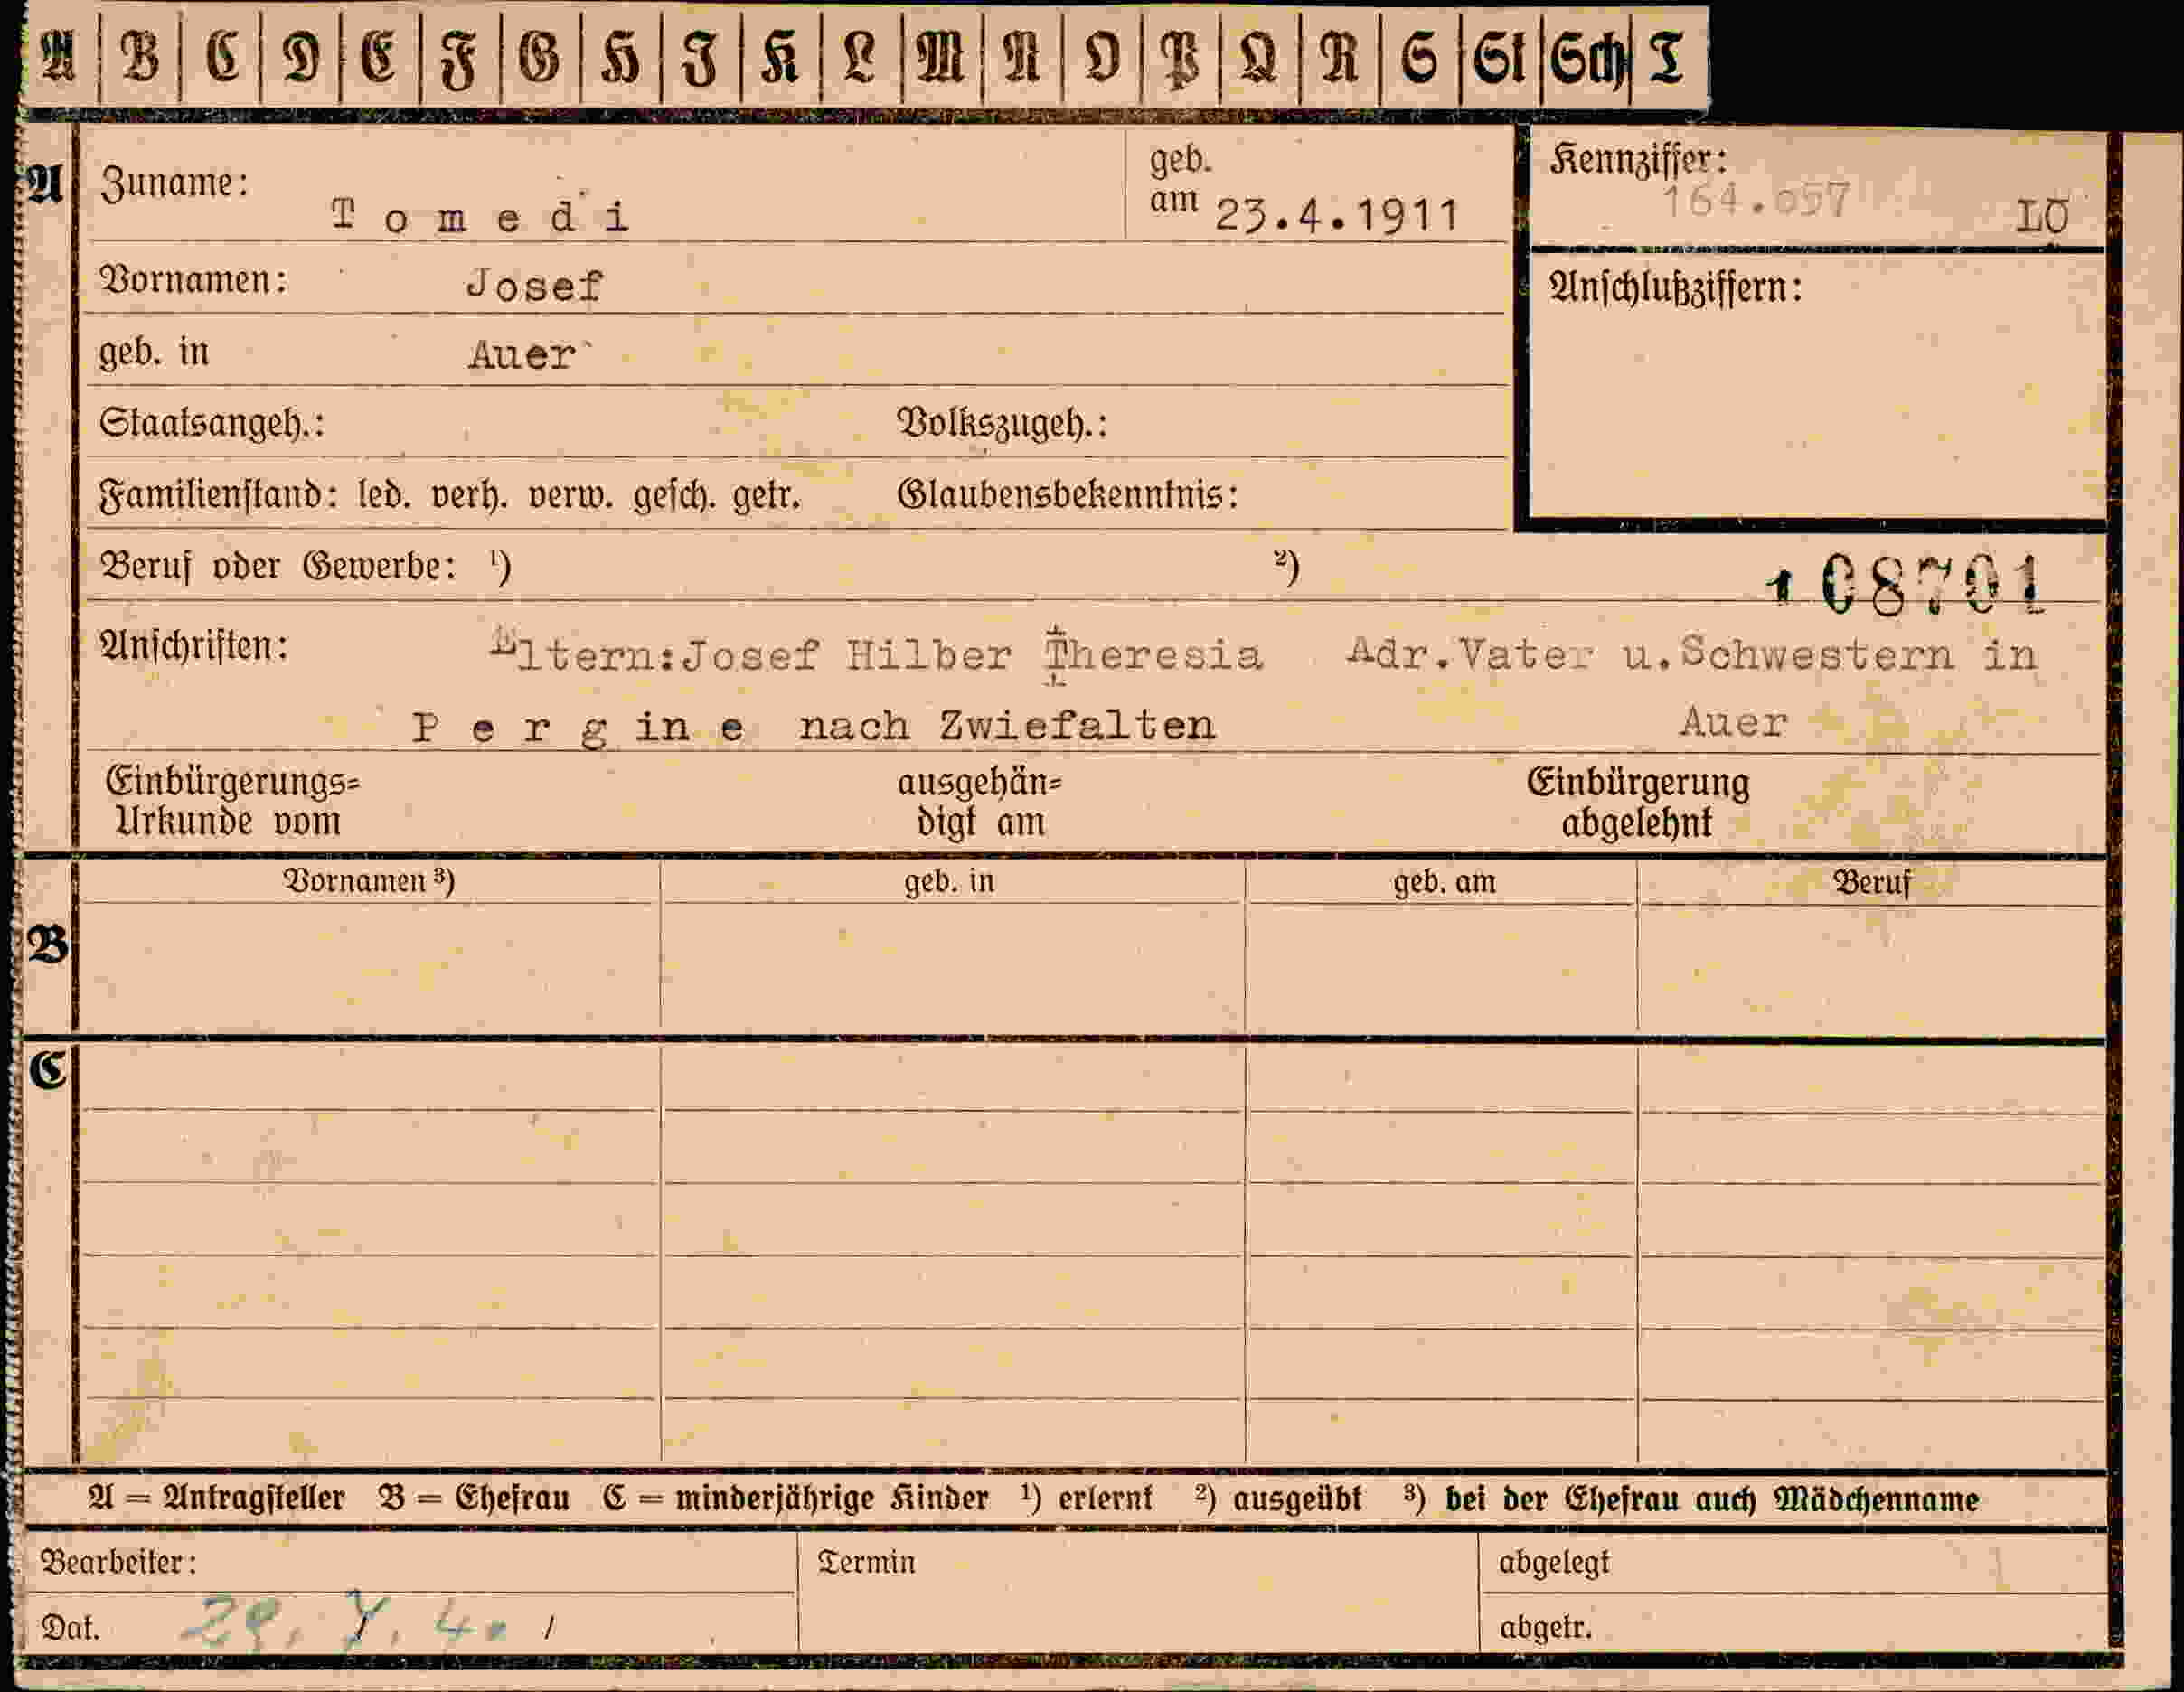 A B C D E F G H I K L M N O P Q R S St Sch T
A Zuname: Tomedi geb. am 23.4.1911 Kennziffer: 164.057 LÖ
Vornamen: Josef Anschlußziffern:
geb. in Auer
Staatsangeh.: Volkszugeh.:
Familienstand: led. verh. verw. gesch. getr. Glaubensbekenntnis:
Beruf oder Gewerbe: ¹) ²) 108701
Anschriften: Eltern:Josef Hilber Theresia Adr.Vater u.Schwestern in
Pergine nach Zwiefalten Auer
Einbürgerungs= ausgehän= Einbürgerung
Urkunde vom digt am abgelehnt
Vornamen ³) geb. in geb. am Beruf
B
C
A = Antragsteller B = Ehefrau C = minderjährige Kinder ¹) erlernt ²) ausgeübt ³) bei der Ehefrau auch Mädchenname
Bearbeiter: Termin abgelegt
Dat. 29. 7. 40 / abgetr.